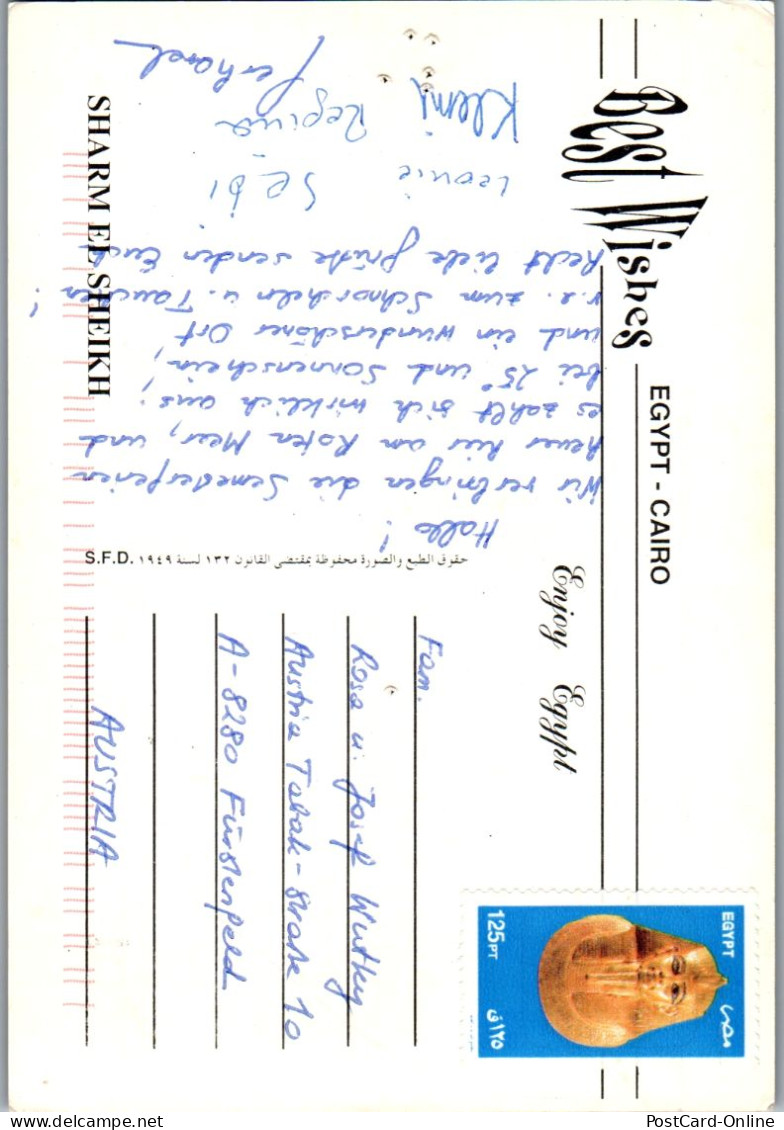 Best Wishes
EGYPT - CAIRO
Enjoy Egypt
EGYPT مصر
125 PT ١٢٥ ق
Hallo!
Wir verbringen die Semesterferien
heuer hier am Roten Meer, und
es zahlt sich wirklich aus.
bei 25° und Sonnenschein,
und ein wunderschöner Ort
v.a. zum Schnorcheln u. Tauchen!
Recht liebe Grüße senden Euch
Leonie Sebi
Klemi Regina
Gerhard
SHARM EL SHEIKH
S.F.D. حقوق الطبع والصورة محفوظة بمقتضى القانون ١٣٢ لسنة ١٩٤٩
Fam.
Rosa u. Josef
Austria Tabak-Straße 10
A-8280 Fürstenfeld
AUSTRIA
PostCard-Online